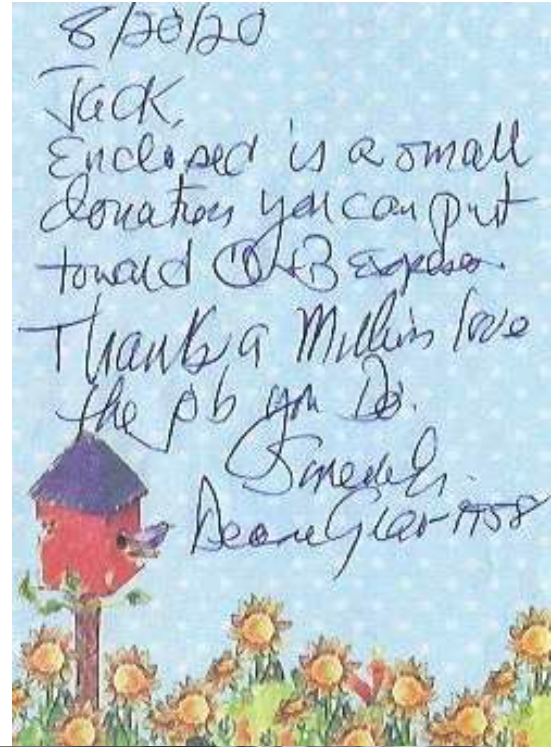 8/20/20
Jack,
Enclosed is a small
donation you can put
toward O+B expenses.
Thanks a Million love
the job you Do.
Sincerely,